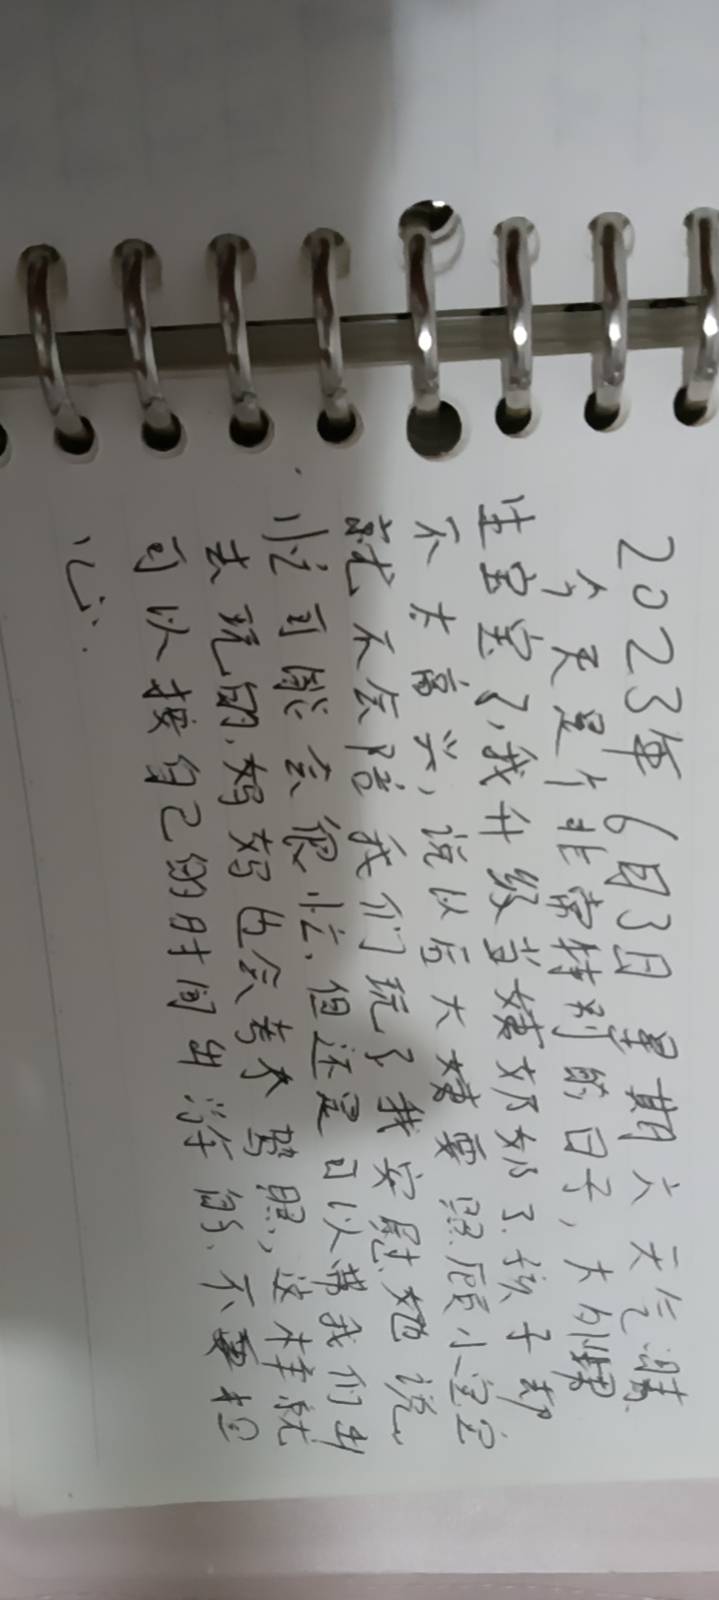 2023年6月3日 星期六 天气晴
今天是个非常特别的日子,大外甥
生宝宝了,我升级当姨奶奶了.孩子却
不太高兴,说以后大姨要照顾小宝宝
就不会陪我们玩了我安慰她说
忙可能会很忙,但还是可以带我们出
去玩的,妈妈也会考个驾照,这样就
可以按自己的时间出游的、不要担
心.